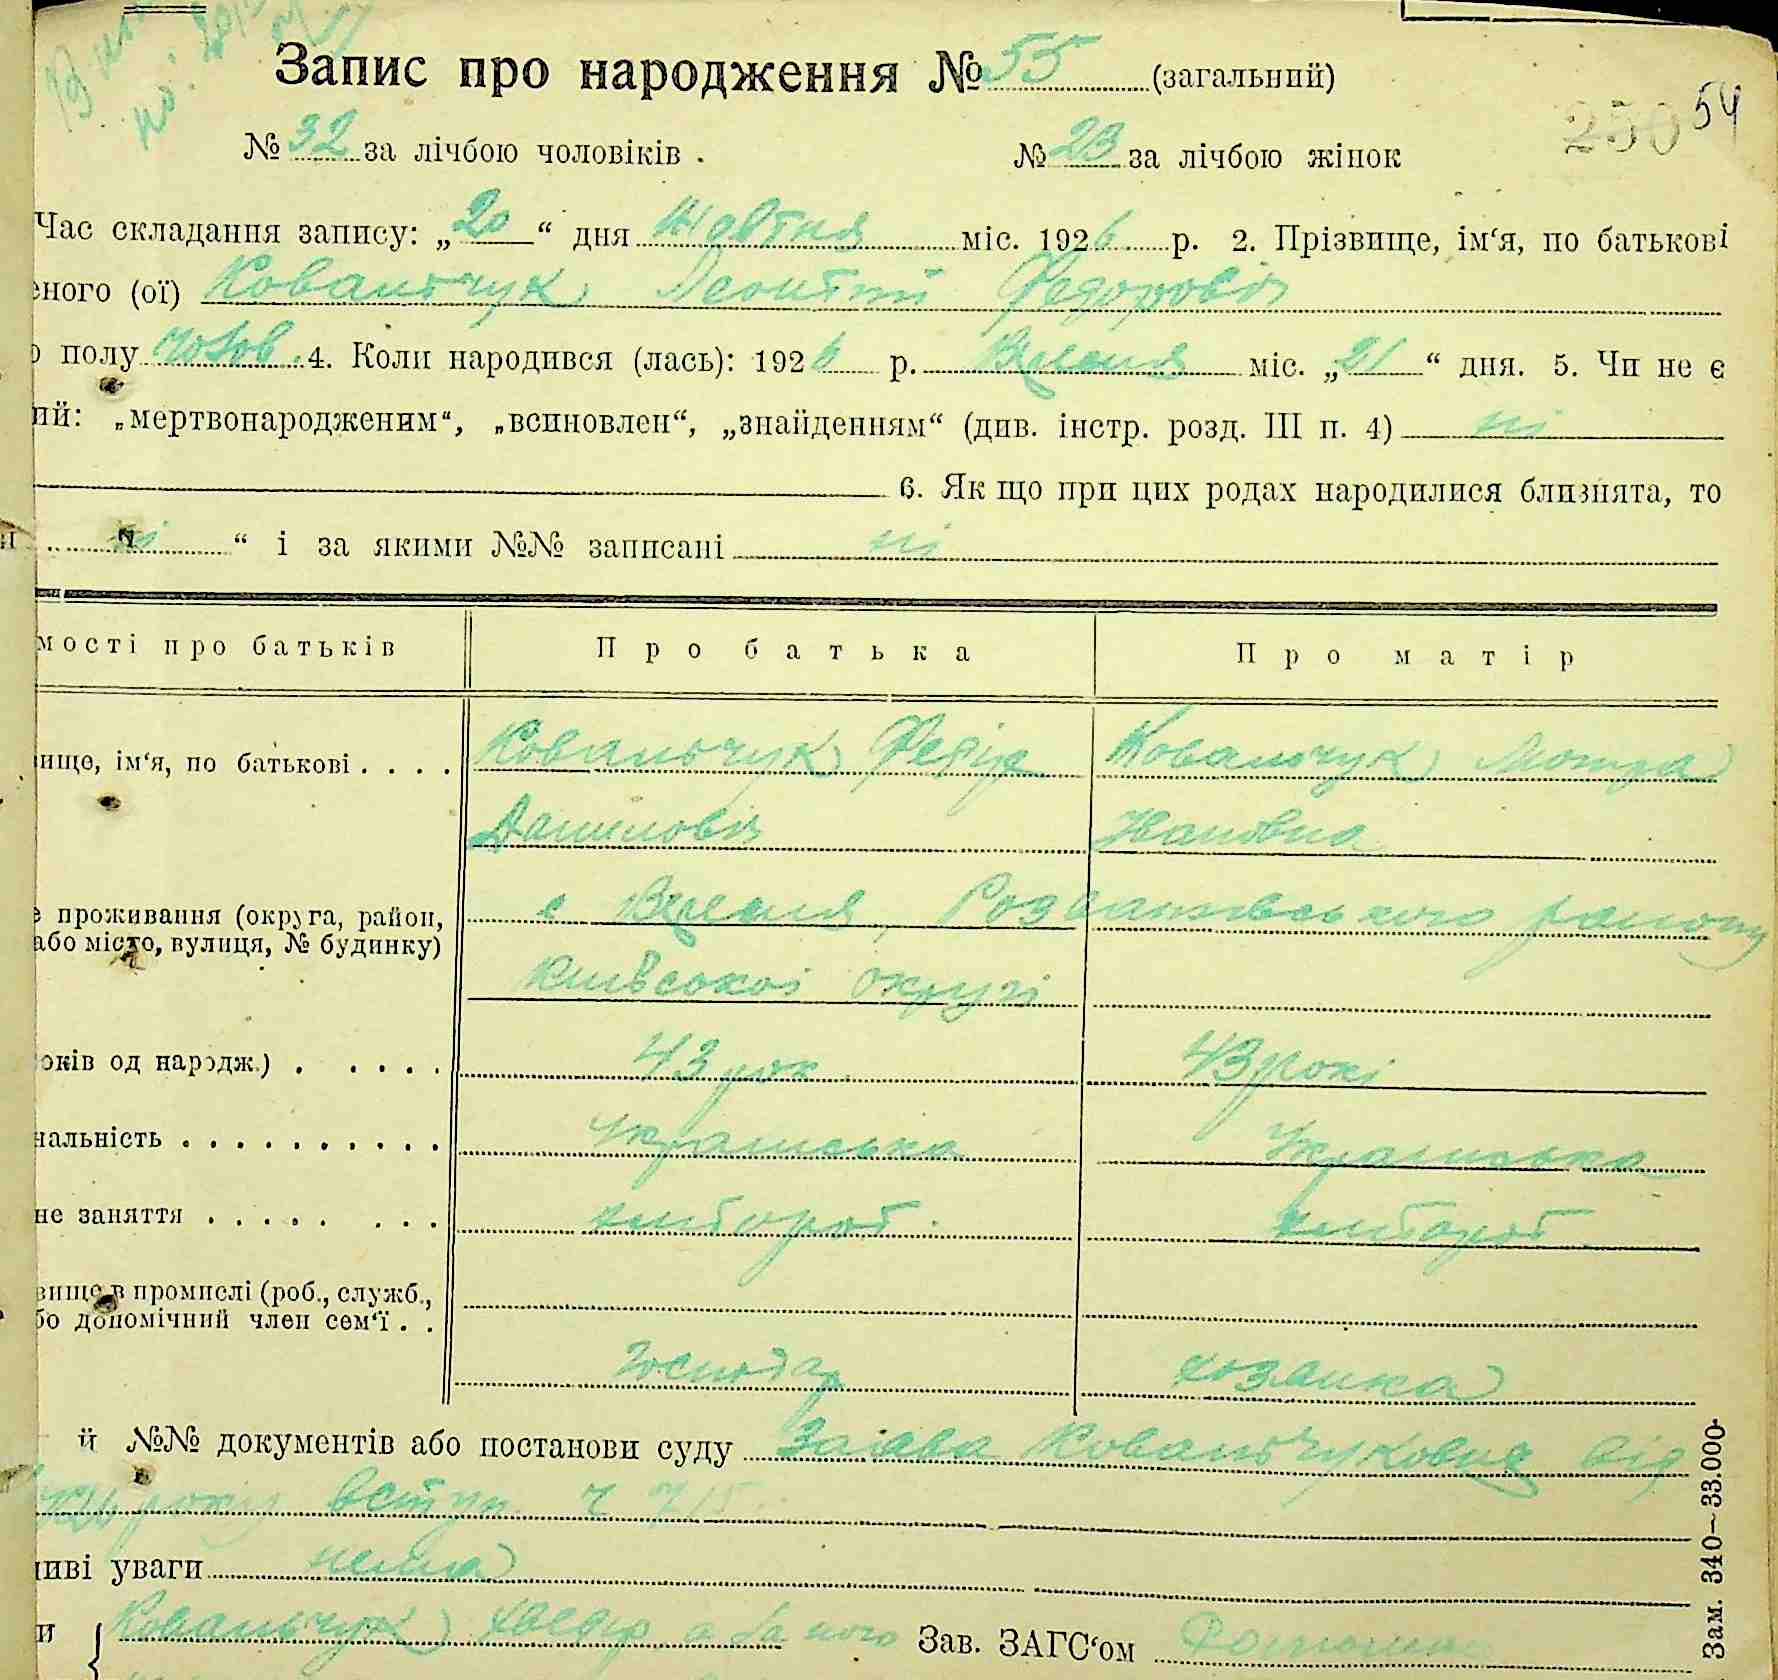 Запис про народження № 55 (загальний)
54
250
№ 32 за лічбою чоловіків . № 23 за лічбою жінок
Час складання запису: „20“ дня Жовтня міс. 1926 р. 2. Прізвище, ім‘я, по батькові
еного (ої) Ковальчук Леонтій Федоровіч
о полу чолов. 4. Коли народився (лась): 1926 р. Вересня міс. „21“ дня. 5. Чи не є
ий: „мертвонародженим“, „всиновлен“, „знайденням“ (див. інстр. розд. III п. 4) ні
6. Як що при цих родах народилися близнята, то
ні “ і за якими №№ записані ні
мості про батьків Про батька Про матір
ище, ім‘я, по батькові . . . . Ковальчук Федір Ковальчук Мотря
Даниловіч Івановна
е проживання (округа, район, с Вересня, Розважівського району
або місто, вулиця, № будинку)
Київської округі
оків од народж.) . . . . . 43 рок 43 рокі
нальність . . . . . . . . . . Українська Українська
не заняття . . . . . . . . хлібороб хлібороб
вище в промислі (роб., служб.,
бо допомічний член сем‘ї . .
господар хозяика
й №№ документів або постанови суду Заява Ковальчукових від
року вступ. ч 715
ливі уваги нема
и Ковальчук а за його Зав. ЗАГС‘ом
Зам. 340—33.000